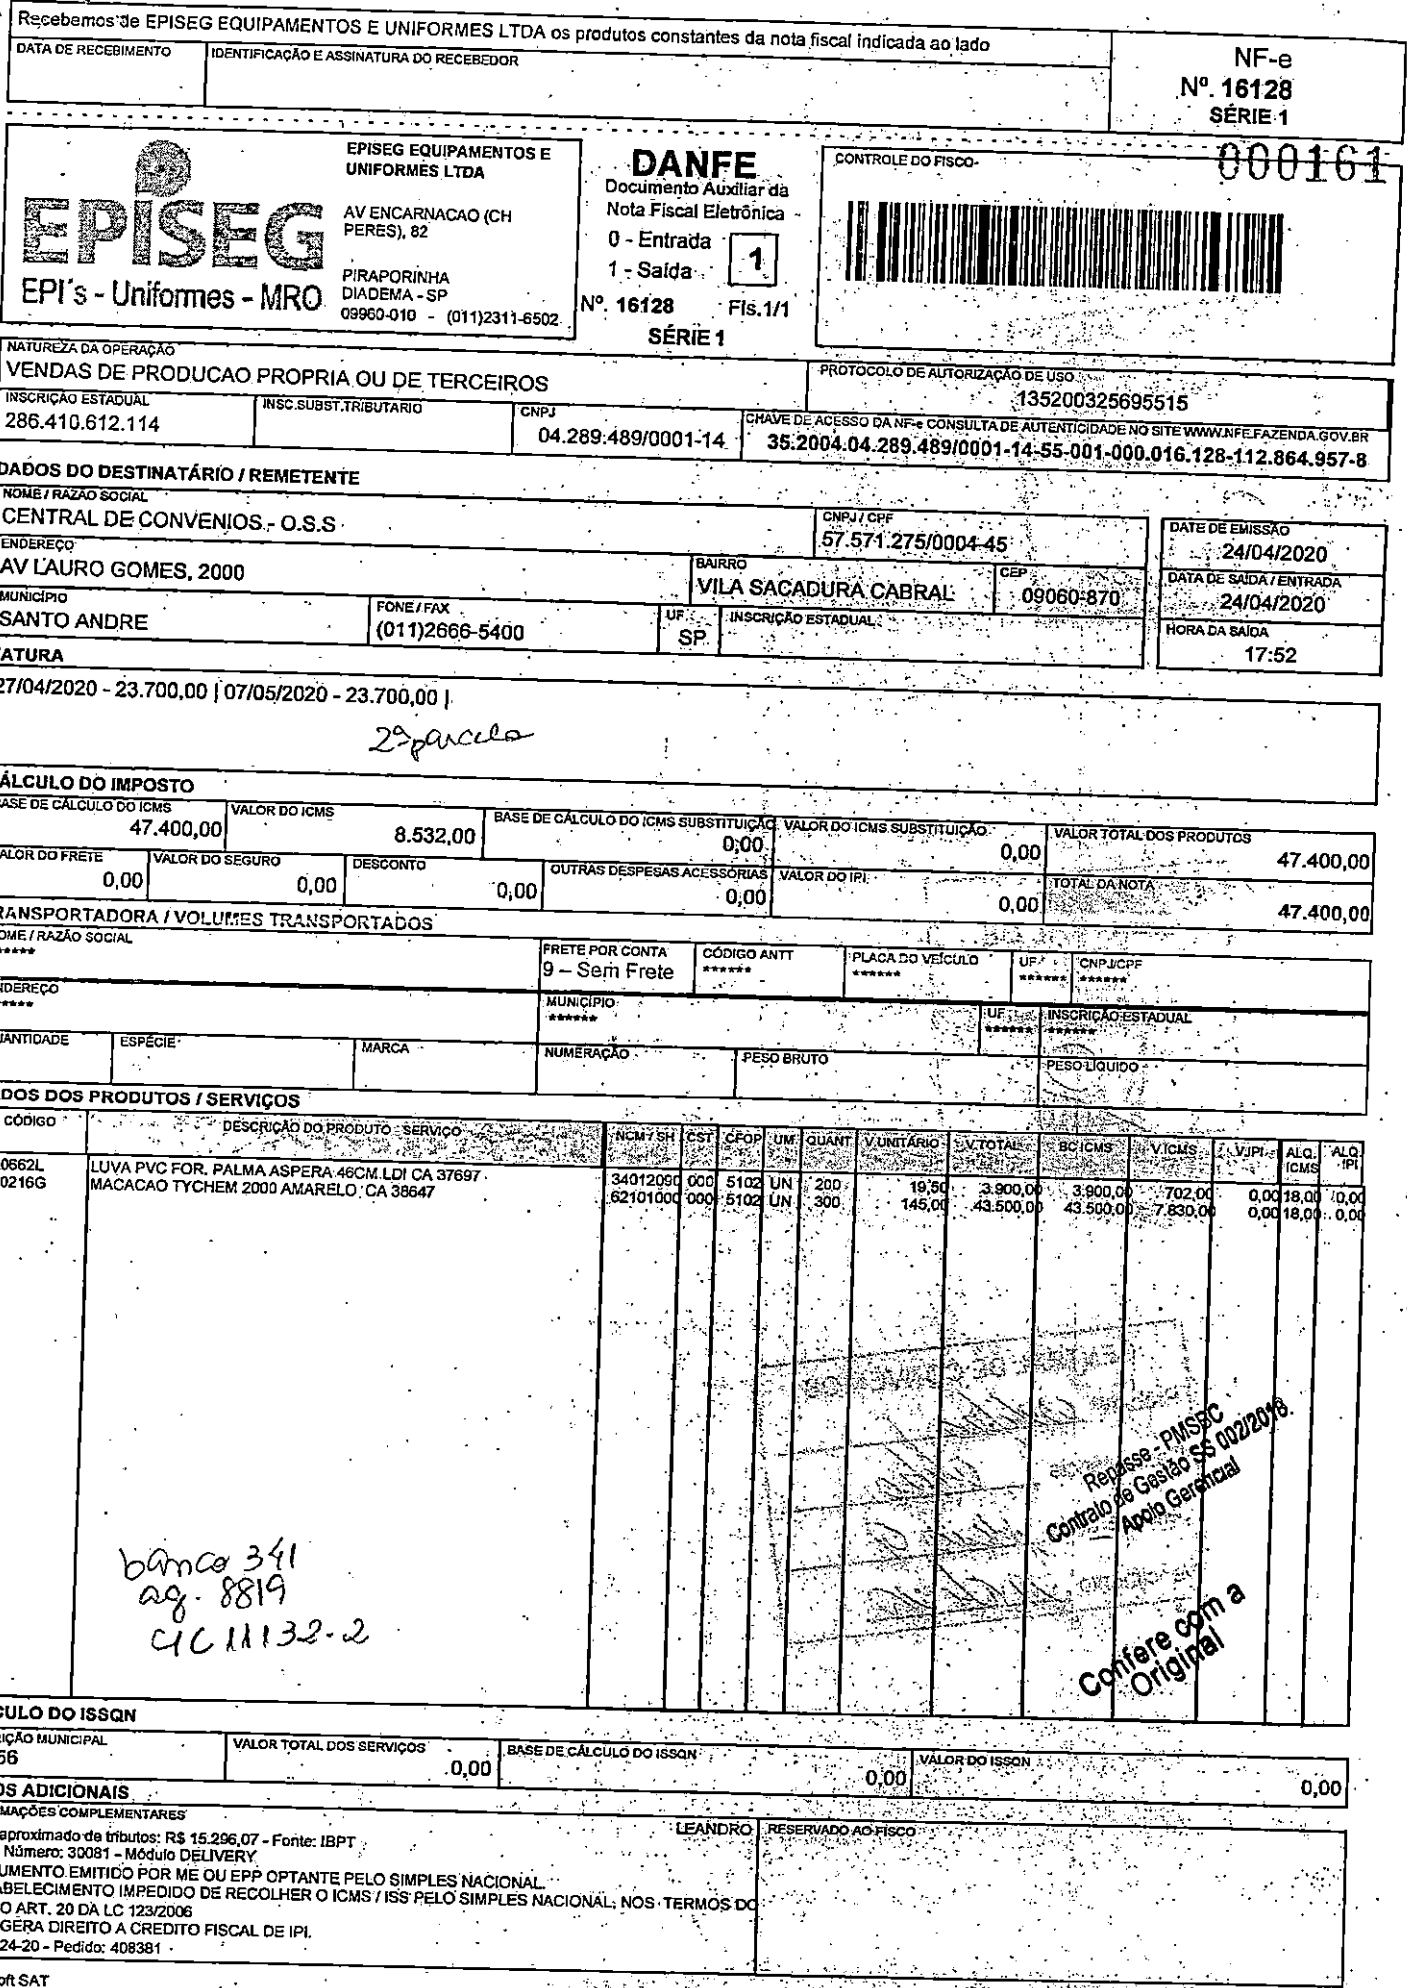 Recebemos de EPISEG EQUIPAMENTOS E UNIFORMES LTDA os produtos constantes da nota fiscal indicada ao lado
DATA DE RECEBIMENTO
IDENTIFICAÇÃO E ASSINATURA DO RECEBEDOR
NF-e
Nº. 16128
SÉRIE 1
000161
EPISEG
EPI´s - Uniformes - MRO
EPISEG EQUIPAMENTOS E
UNIFORMES LTDA
AV ENCARNACAO (CH
PERES), 82
PIRAPORINHA
DIADEMA - SP
09960-010 - (011)2311-6502
DANFE
Documento Auxiliar da
Nota Fiscal Eletrônica
0 - Entrada
1 - Saída
1
Nº. 16128 Fls.1/1
SÉRIE 1
CONTROLE DO FISCO
NATUREZA DA OPERAÇÃO
VENDAS DE PRODUCAO PROPRIA OU DE TERCEIROS
PROTOCOLO DE AUTORIZAÇÃO DE USO
135200325695515
INSCRIÇÃO ESTADUAL
286.410.612.114
INSC.SUBST.TRIBUTARIO
CNPJ
04.289.489/0001-14
CHAVE DE ACESSO DA NF-e CONSULTA DE AUTENTICIDADE NO SITE WWW.NFE.FAZENDA.GOV.BR
35.2004.04.289.489/0001-14-55-001-000.016.128-112.864.957-8
DADOS DO DESTINATÁRIO / REMETENTE
NOME / RAZÃO SOCIAL
CENTRAL DE CONVENIOS - O.S.S
CNPJ / CPF
57.571.275/0004-45
DATE DE EMISSÃO
24/04/2020
ENDEREÇO
AV LAURO GOMES, 2000
BAIRRO
VILA SACADURA CABRAL
CEP
09060-870
DATA DE SAÍDA / ENTRADA
24/04/2020
MUNICÍPIO
SANTO ANDRE
FONE / FAX
(011)2666-5400
UF
SP
INSCRIÇÃO ESTADUAL
HORA DA SAÍDA
17:52
ATURA
27/04/2020 - 23.700,00 | 07/05/2020 - 23.700,00 |
2ª parcela
ÁLCULO DO IMPOSTO
BASE DE CÁLCULO DO ICMS
47.400,00
VALOR DO ICMS
8.532,00
BASE DE CÁLCULO DO ICMS SUBSTITUIÇÃO
0,00
VALOR DO ICMS SUBSTITUIÇÃO
0,00
VALOR TOTAL DOS PRODUTOS
47.400,00
ALOR DO FRETE
0,00
VALOR DO SEGURO
0,00
DESCONTO
0,00
OUTRAS DESPESAS ACESSÓRIAS
0,00
VALOR DO IPI
0,00
TOTAL DA NOTA
47.400,00
RANSPORTADORA / VOLUMES TRANSPORTADOS
OME / RAZÃO SOCIAL
*****
FRETE POR CONTA
9 – Sem Frete
CÓDIGO ANTT
******
PLACA DO VEÍCULO
******
UF
******
CNPJ/CPF
******
NDEREÇO
*****
MUNICÍPIO
******
UF
******
INSCRIÇÃO ESTADUAL
******
UANTIDADE
ESPÉCIE
MARCA
NUMERAÇÃO
PESO BRUTO
PESO LÍQUIDO
DOS DOS PRODUTOS / SERVIÇOS
CÓDIGO DESCRIÇÃO DO PRODUTO - SERVICO NCM / SH CST CFOP UM QUANT V.UNITÁRIO V.TOTAL BC ICMS V.ICMS V.IPI ALQ. ICMS ALQ. IPI
0662L LUVA PVC FOR. PALMA ASPERA 46CM LDI CA 37697 34012090 000 5102 UN 200 19,50 3.900,00 3.900,00 702,00 0,00 18,00 0,00
0216G MACACAO TYCHEM 2000 AMARELO, CA 38647 62101000 000 5102 UN 300 145,00 43.500,00 43.500,00 7.830,00 0,00 18,00 0,00
Repasse - PMSBC
Contrato de Gestão SS 002/2018.
Apoio Gerencial
banco 341
ag. 8819
C/C 11132-2
Confere com a
Original
CULO DO ISSQN
IÇÃO MUNICIPAL
56
VALOR TOTAL DOS SERVIÇOS
0,00
BASE DE CÁLCULO DO ISSQN
0,00
VALOR DO ISSQN
0,00
OS ADICIONAIS
MAÇÕES COMPLEMENTARES
LEANDRO
RESERVADO AO FISCO
aproximado de tributos: R$ 15.296,07 - Fonte: IBPT
Número: 30081 – Módulo DELIVERY
UMENTO EMITIDO POR ME OU EPP OPTANTE PELO SIMPLES NACIONAL.
ABELECIMENTO IMPEDIDO DE RECOLHER O ICMS / ISS PELO SIMPLES NACIONAL, NOS TERMOS DO
O ART. 20 DA LC 123/2006
GERA DIREITO A CREDITO FISCAL DE IPI.
24-20 - Pedido: 408381
oft SAT